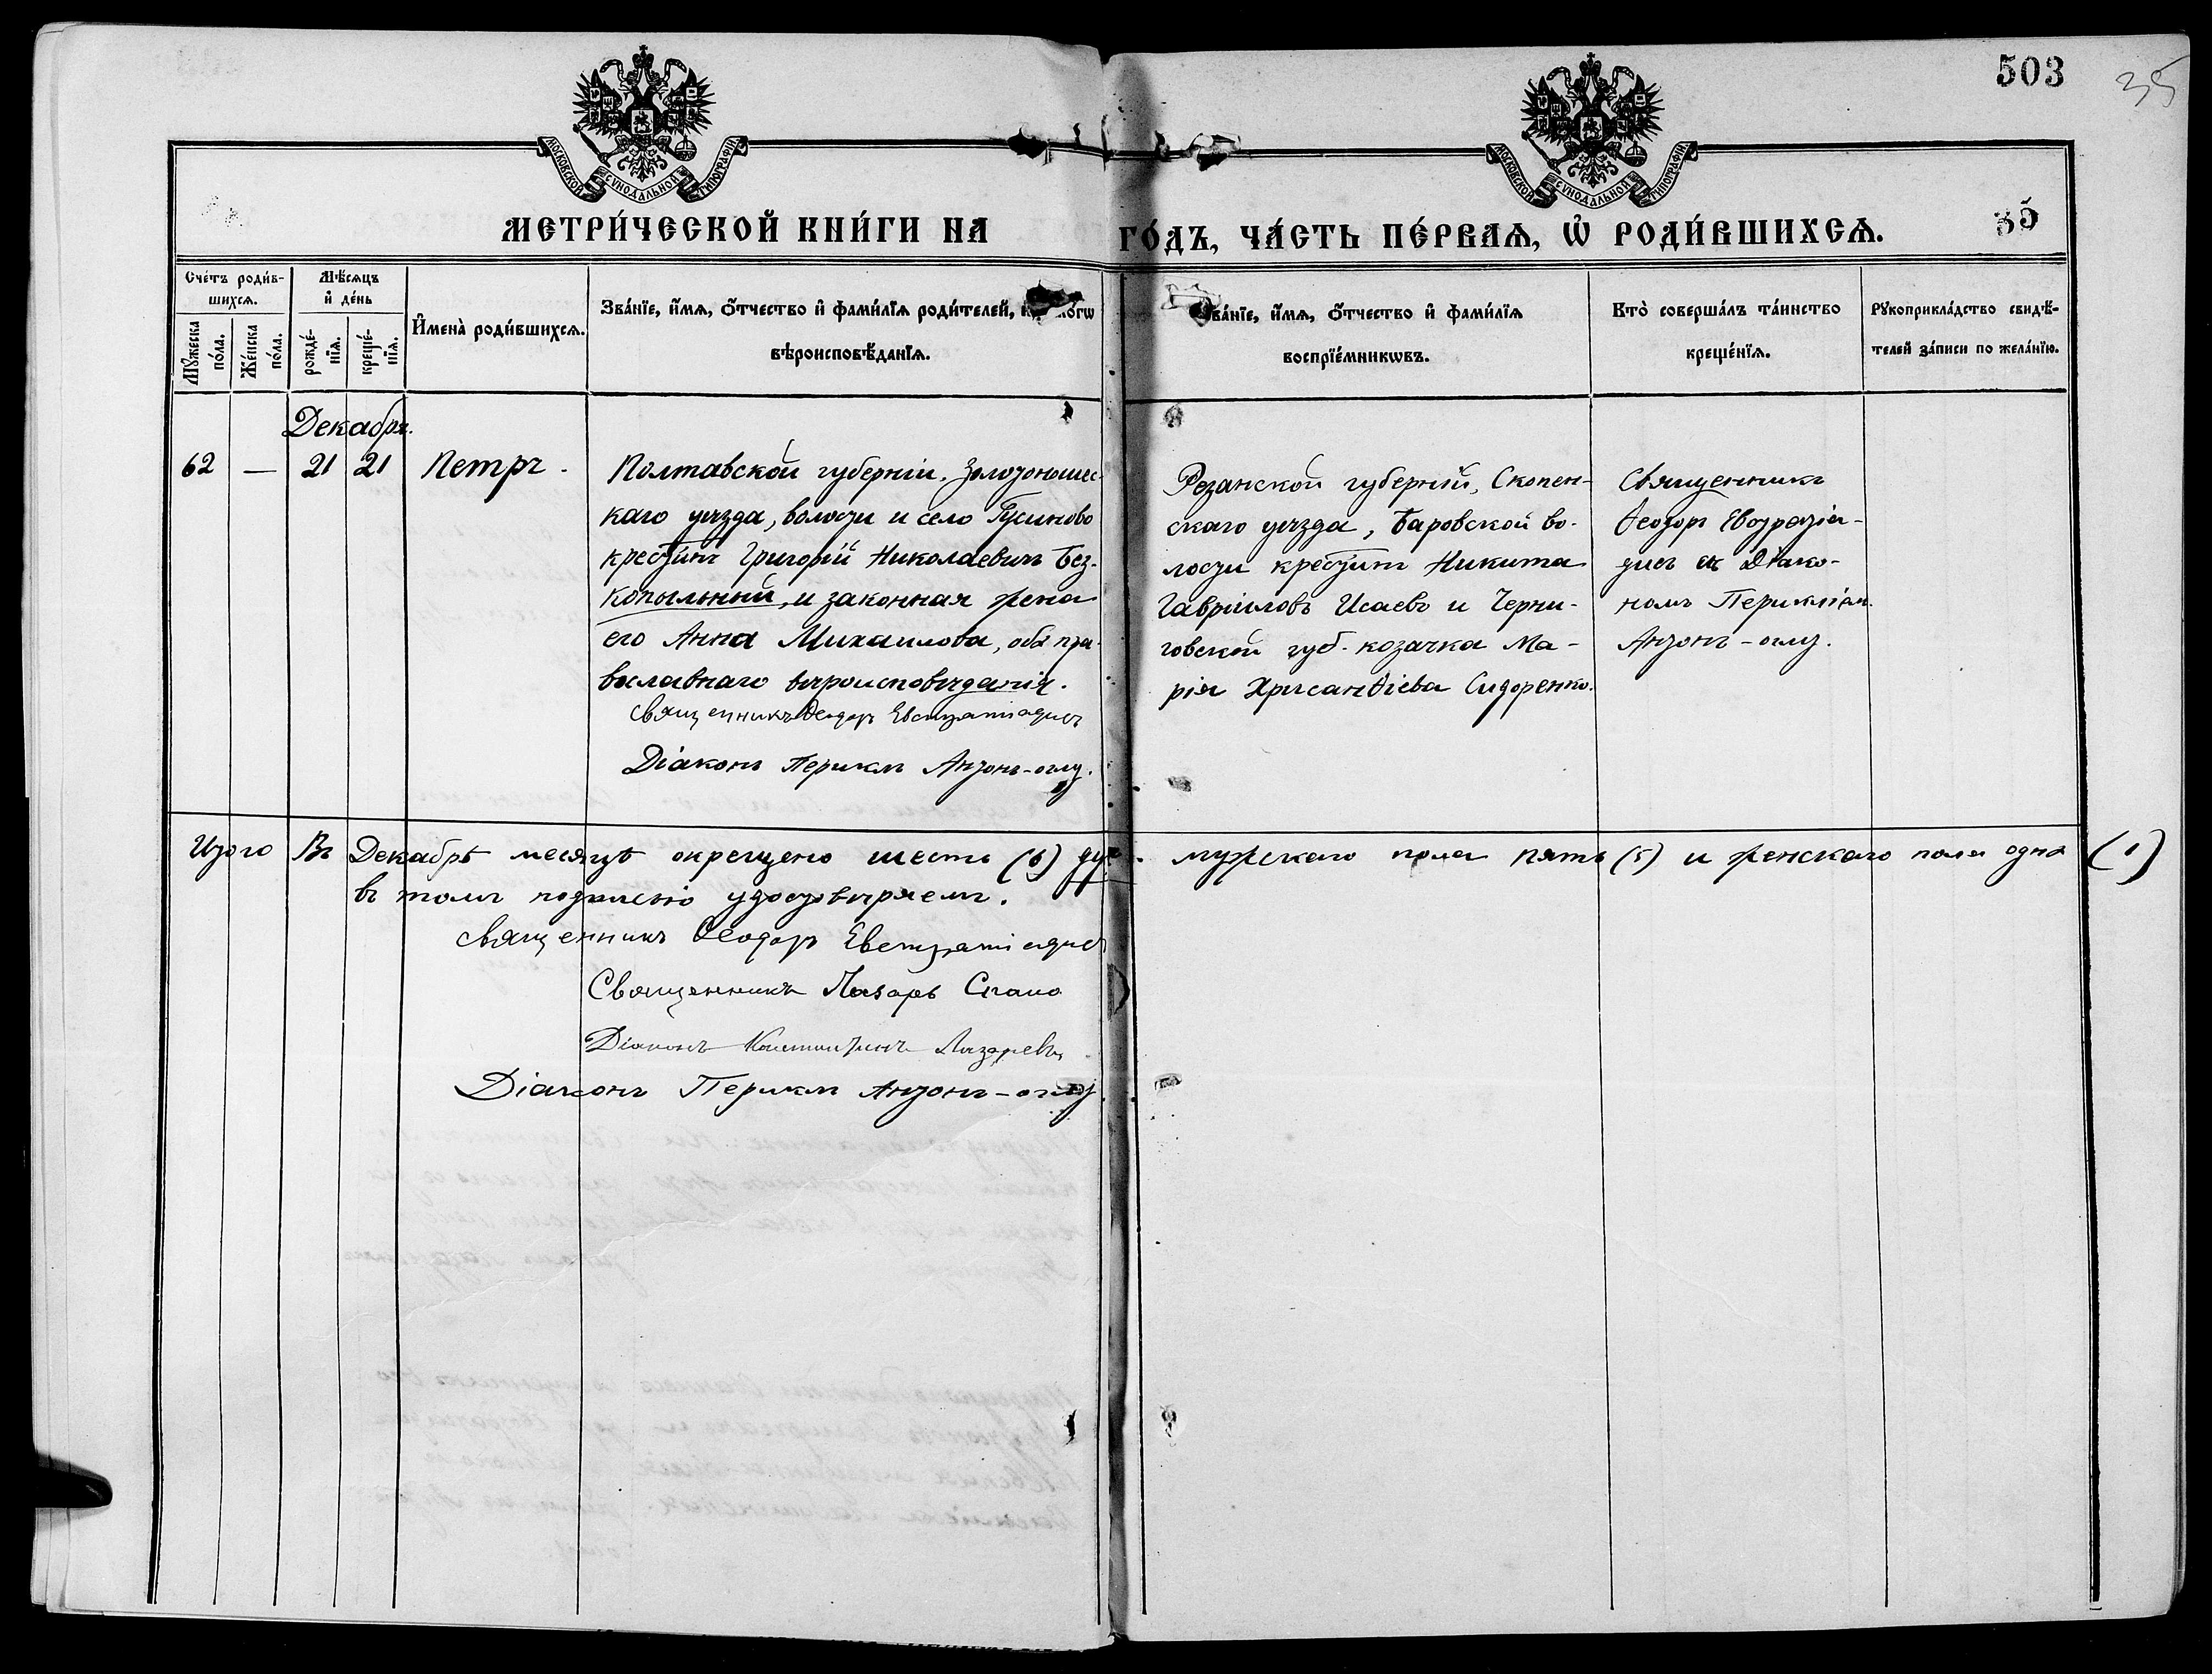 503
35
МОСКОВСКОЙ СУНОДАЛЬНОЙ ТИПОГРАФІИ
МОСКОВСКОЙ СУНОДАЛЬНОЙ ТИПОГРАФІИ
МЕТРИ́ЧЕСКОЙ КНИ́ГИ НА
ГО́ДЪ, ЧА́СТЬ ПЕ́РВАѦ, Ѡ РОДИ́ВШИХСѦ.
35
Сче́тъ роди́в-
шихсѧ.
Мѣ́сѧцъ
и де́нь
Мꙋ́жеска
по́ла.
Же́нска
по́ла.
рожде́-
нїѧ.
креще́-
нїѧ.
И҆мена̀ роди́вшихсѧ.
Зва́нїе, и҆́мѧ, ѻ҆́тчество и҆ фами́лїѧ роди́телей,
вѣроисповѣ́данїѧ.
зва́нїе, и҆́мѧ, ѻ҆́тчество и҆ фами́лїѧ
воспрїе́мникѡвъ.
Кто̀ соверша́лъ та́инство
креще́нїѧ.
Рꙋкоприкла́дство свидѣ́-
телей за́писи по жела́нїю.
Декабрь.
62 — 21 21 Петръ.
Полтавской губерніи, Золотоношес-
каго уѣзда, волости и село Гусиново
крестьян Григорій Николаевичъ Без-
копыльный, и законная жена
его Анна Михаилова, оба пра-
вославнаго вѣроисповѣданія.
Священникъ Ѳеодоръ Евстратіадисъ
Діаконъ Перикл Антонъ-оглу.
Резанской губерній, Скопен-
скаго уѣзда, Баровской во-
лости крестьян Никита
Гавріиловъ Исаевъ и Черни-
говской губ. козачка Ма-
рія Хрисанѳіева Сидоренко.
Священникъ
Ѳеодоръ Евстратіа-
дисъ съ Діако-
номъ Перикліом
Антонъ-оглу.
Итого Въ Декабрѣ месяцѣ окрещено шесть (6) душ. мужскаго пола пять (5) и женскаго пола одна (1)
въ томъ подписью удостовѣряемъ.
Священникъ Ѳеодоръ Евстратіадисъ
Священникъ Лазарь
Діаконъ Константинъ Лазаревъ
Діаконъ Перикл Антонъ-оглу